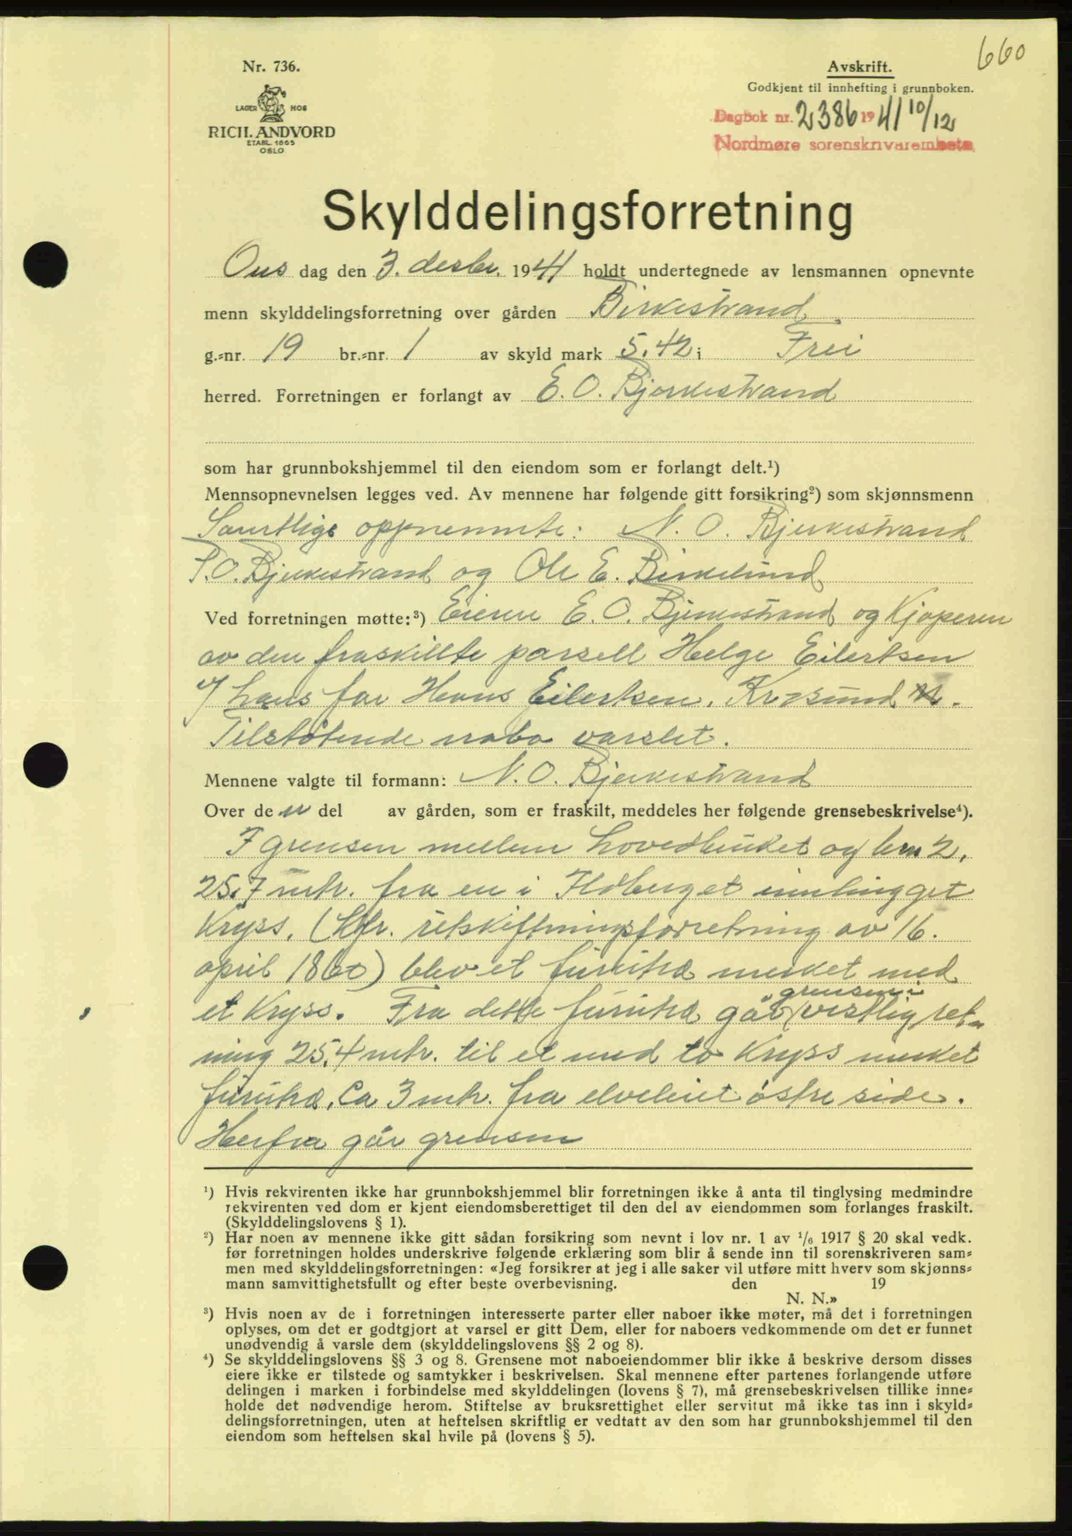 660
Nr. 736.
LAGER HOS
RICH. ANDVORD
ETABL. 1865
OSLO
Avskrift.
Godkjent til innhefting i grunnboken.
Dagbok nr. 2386 1941 10/12
Nordmøre sorenskrivarembete
Skylddelingsforretning
Ons dag den 3. desbr. 1941 holdt undertegnede av lensmannen opnevnte
menn skylddelingsforretning over gården Birkestrand
g.=nr. 19 br.=nr. 1 av skyld mark 5.42 i Frei
herred. Forretningen er forlangt av E. O. Bjerkestrand
som har grunnbokshjemmel til den eiendom som er forlangt delt.¹)
Mennsopnevnelsen legges ved. Av mennene har følgende gitt forsikring²) som skjønnsmenn
Samtlige oppnevnte: N. O. Bjerkestrand
P. O. Bjerkestrand og Ole E. Birkelund
Ved forretningen møtte:³) Eieren E. O. Bjerkestrand og Kjøperen
av den fraskillte parsell Helge Eilertsen
v/ hans far Hans Eilertsen, Kr.sund N.
Tilstøtende nabo varslet.
Mennene valgte til formann: N. O. Bjerkestrand
Over de n del av gården, som er fraskilt, meddeles her følgende grensebeskrivelse⁴).
I grensen mellem hovedbruket og brn 2,
25.7 mtr. fra en i Flåberget innhugget
Kryss, (Kfr. utskiftningsforretning av 16.
april 1860) blev et furutre merket med
et Kryss. Fra dette furutre går grensen i vestlig ret-
ning 25.4 mtr. til et med to Kryss merket
furutre, Ca 3 mtr. fra elveleiet østre side.
Herfra går grensen
¹) Hvis rekvirenten ikke har grunnbokshjemmel blir forretningen ikke å anta til tinglysing medmindre
rekvirenten ved dom er kjent eiendomsberettiget til den del av eiendommen som forlanges fraskilt.
(Skylddelingslovens § 1).
²) Har noen av mennene ikke gitt sådan forsikring som nevnt i lov nr. 1 av ¹/₆ 1917 § 20 skal vedk.
før forretningen holdes underskrive følgende erklæring som blir å sende inn til sorenskriveren sam=
men med skylddelingsforretningen: «Jeg forsikrer at jeg i alle saker vil utføre mitt hverv som skjønns=
mann samvittighetsfullt og efter beste overbevisning. den 19
N. N.»
³) Hvis noen av de i forretningen interesserte parter eller naboer ikke møter, må det i forretningen
oplyses, om det er godtgjort at varsel er gitt Dem, eller for naboers vedkommende om det er funnet
unødvendig å varsle dem (skylddelingslovens §§ 2 og 8).
⁴) Se skylddelingslovens §§ 3 og 8. Grensene mot naboeiendommer blir ikke å beskrive dersom disses
eiere ikke er tilstede og samtykker i beskrivelsen. Skal mennene efter partenes forlangende utføre
delingen i marken i forbindelse med skylddelingen (lovens § 7), må grensebeskrivelsen tillike inne=
holde det nødvendige herom. Stiftelse av bruksrettighet eller servitut må ikke tas inn i skyld=
delingsforretningen, uten at heftelsen skriftlig er vedtatt av den som har grunnbokshjemmel til den
eiendom som heftelsen skal hvile på (lovens § 5).